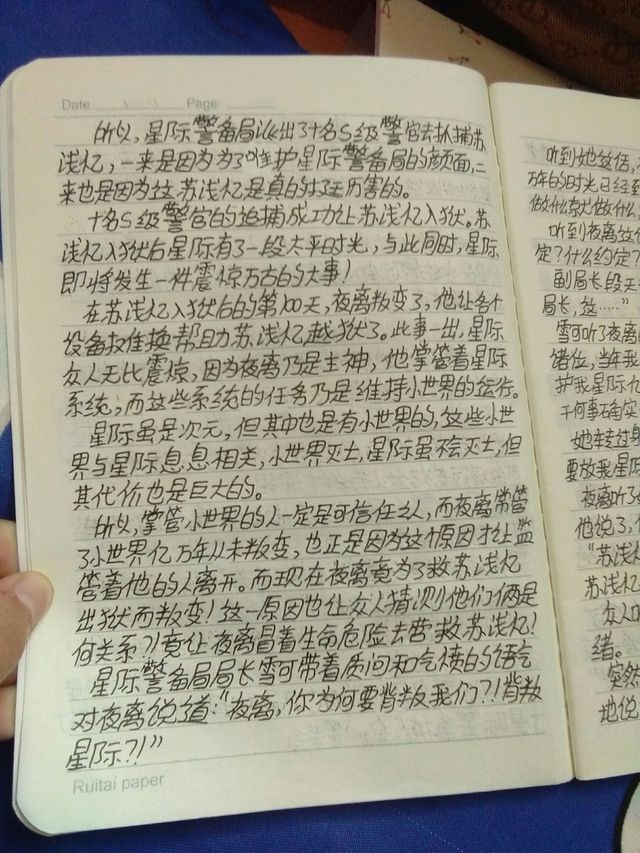 Date \ \ Page
所以，星际警备局派出了十名S级警官去抓捕苏
浅忆，一来是因为为了维护星际警备局的颜面，二
来也是因为这苏浅忆是真的好生厉害的。
十名S级警官的追捕成功让苏浅忆入狱。苏
浅忆入狱后星际有了一段太平时光，与此同时，星际
即将发生一件震惊万古的大事！
在苏浅忆入狱后的第100天，夜离叛变了，他让各个
设备权准换帮助苏浅忆越狱了。此事一出，星际
众人无比震惊，因为夜离乃是主神，他掌管着星际
系统，而这些系统的任务乃是维持小世界的运行。
星际虽是次元，但其中也是有小世界的，这些小世
界与星际息息相关，小世界灭亡，星际虽不会灭亡，但
其代价也是巨大的。
所以，掌管小世界的人一定是可信任之人，而夜离常管
了小世界亿万年从未叛变，也正是因为这个原因才让监
管着他的人离开。而现在夜离竟为了救苏浅忆
出狱而叛变！这一原因也让众人猜测他们俩是
何关系?！竟让夜离冒着生命危险去营救苏浅忆！
星际警备局局长雪可带着质问和气愤的语气
对夜离说道：“夜离，你为何要背叛我们?！背叛
星际?！”
Ruitai paper
听到她这话，
万年的时光已经
做什么就做什么
听到夜离这
定？什么约定？
副局长段天
局长，这……”
雪可听了夜离
绪位，当年我
护我星际九
干何事不需
她转过身
要放我星际
夜离听了
他说了，
“苏浅
苏浅忆
众人
绪。
突然
地说